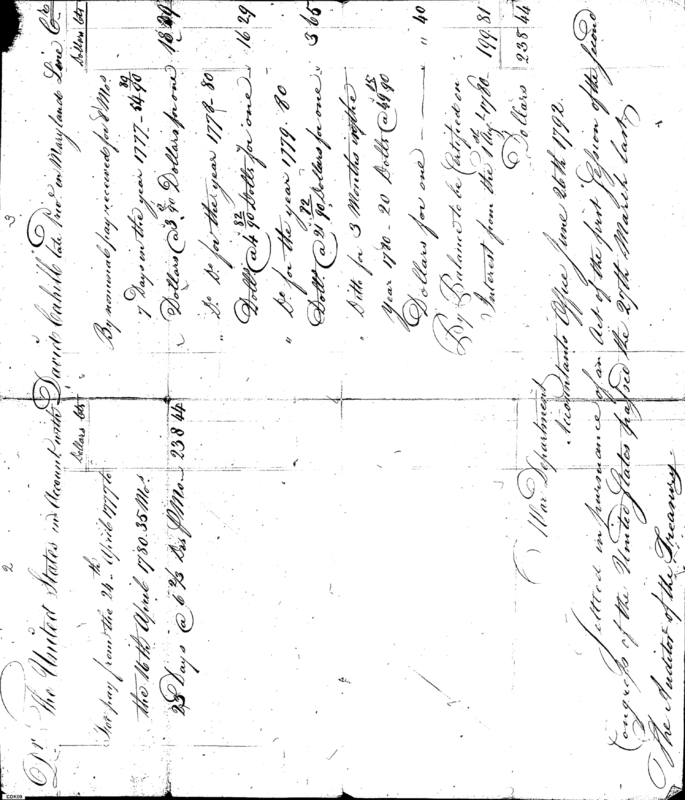 2 3
Dr The United States in Account with David Cahill late Priv. in Maryland Line Cr.
Dollars Cts
For pay from the 24th April 1777 to
the 16th April 1780. 35 Mos
23 Days @ 6 2/3 Drs P Mo 238 44
Dollars Cts
By nominal pay received for 8 Mos
7 Days in the year 1777 -
Dollars for one
" Do Do for the year 1778 - 80
Dolls @ 4 82/90 Dolls for one 16 29
" Do for the year 1779. 80
Dolls @ 21 72/90 Dollars for one 3 65
" Ditto for 3 Months in the
Year 1780 - 20 Dolls @ 49 15/90
Dollars for one " 40
By Balance to be Certified on
Interest from the 1780 199 81
Dollars 238 44
War Department
Accountants Office June 26th 1792.
Settled in pursuance of an Act of the first Session of the Second
Congress of the United States passed the 27th March last.
The Auditor of the Treasury.
CDK09